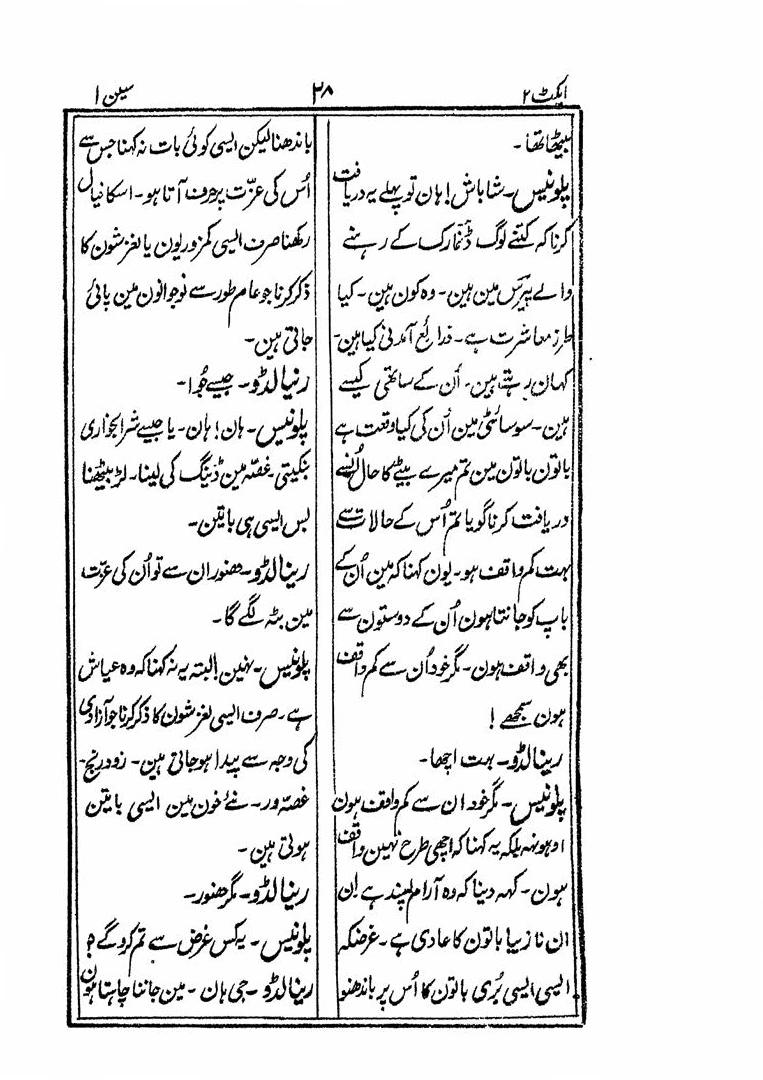 ایکٹ ۲
۳۸
سین ۱
بیٹھا تھا۔
پلونیس۔ شاباش! ہان تو پہلے یہ دریافت
کرنا کہ کتنے لوگ ڈنمارک کے رہنے
والے پیرس مین ہین۔ وہ کون ہین۔ کیا
طرز معاشرت ہے۔ ذرائع آمدنی کیا ہین۔
کہان رہتے ہین۔ اُن کے ساتھی کیسے
ہین۔ سوسائٹی مین اُن کی کیا وقعت ہے
باتون باتون مین تم میرے بیٹے کا حال اُنسے
دریافت کرنا گویا تم اُس کے حالات سے
بہت کم واقف ہو۔ یون کہنا کہ مین اُن کے
باپ کو جانتا ہون اُن کے دوستون سے
بھی واقف ہون۔ مگر خود اُن سے کم واقف
ہون سمجھے!
رینالڈو۔ بہت اچھا۔
پلونیس۔ مگر خود ان سے کم واقف ہون
اوہونہ بلکہ یہ کہنا کہ اچھی طرح نہین واقف
ہون۔ کہہ دینا کہ وہ آرام پسند ہے اِن
ان نازیبا باتون کا عادی ہے۔ غرضکہ
ایسی ایسی بُری باتون کا اُس پر باندھنو
باندھنا لیکن ایسی کوئی بات نہ کہنا جس سے
اُس کی عزّت پر حرف آتا ہو۔ اسکا خیال
رکھنا صرف ایسی کمزوریون یا لغزشون کا
ذکر کرنا جو عام طور سے نوجوانون مین پائی
جاتی ہین۔
رنیالڈو۔ جیسے جُوا۔
پلونیس۔ ہان! ہان۔ یا جیسے شرابخواری
بنکیتی۔ غصّہ مین ڈینگ کی لینا۔ لڑ بیٹھنا
بس ایسی ہی باتین۔
رینالڈو۔ حضور ان سے تو اُن کی عزّت
مین بٹہ لگے گا۔
پلونیس۔ نہین! البتہ یہ نہ کہنا کہ وہ عیاش
ہے۔ صرف ایسی لغزشون کا ذکر کرنا جو آزادی
کی وجہ سے پیدا ہو جاتی ہین۔ زود رنج۔
غصّہ ور۔ نئے خون مین ایسی باتین
ہوتی ہین۔
رینالڈو۔ مگر حضور۔
پلونیس۔ یہ کس غرض سے تم کروگے؟
رینالڈو۔ جی ہان۔ مین جاننا چاہتا ہون